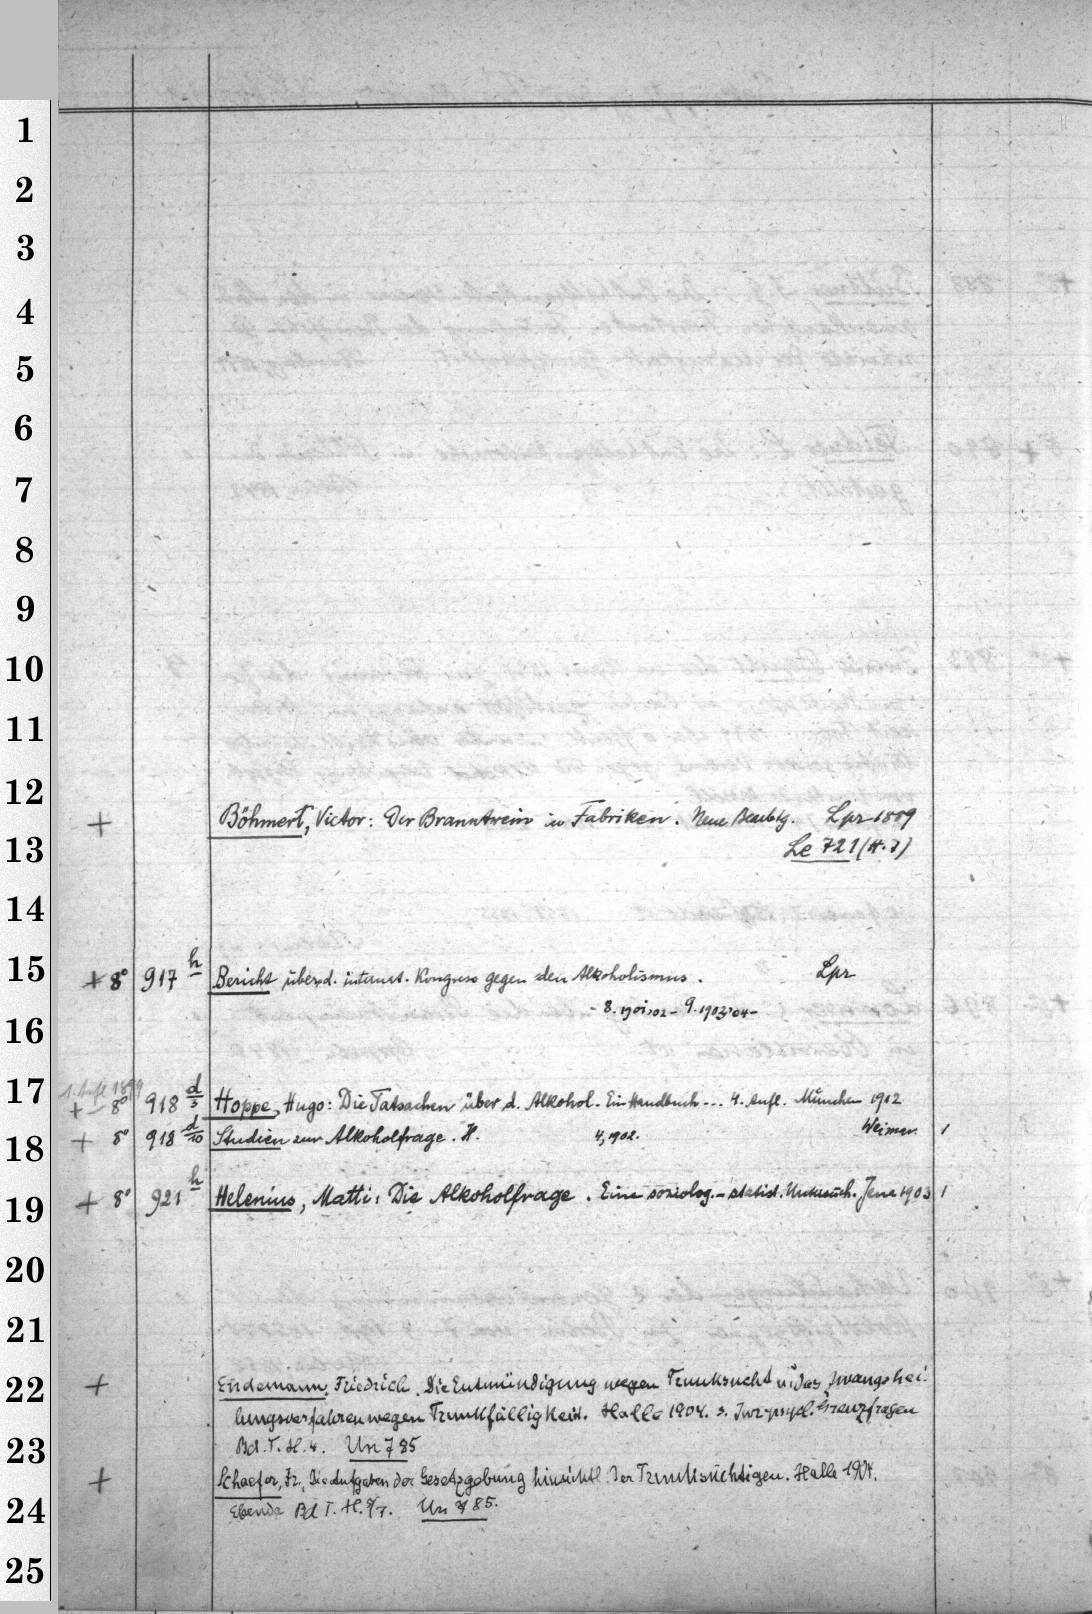 1
2
3
4
5
6
7
8
9
10
11
12
+ Böhmert, Victor: Der Branntwein in Fabriken. Neue Bearbtg. Lpz 1889
13
Le 721 (H. 7)
14
15
+ 8° 917 h Bericht über d. internat. Kongress gegen den Alkoholismus. Lpz
- 8. 1901,02 - 9. 1903,04 -
16
17
1. Aufl 1899
+ - 8° 918 d/3 Hoppe, Hugo: Die Tatsachen über d. Alkohol. Ein Handbuch ... 4. Aufl. München 1912
18
+ 8° 918 d/10 Studien zur Alkoholfrage. H. 4, 1902. Weimar. 1
19
+ 8° 921 h Helenius, Matti: Die Alkoholfrage. Eine soziolog.-statist. Untersuch. Jena 1903 1
20
21
22
+ Endemann, Friedrich. Die Entmündigung wegen Trunksucht u. das Zwangshei-
lungsverfahren wegen Trunkfälligkeit. Halle 1904. s. Jur.-psych. Grenzfragen
23
Bd. I. H. 4. Un 785
+ Schaefer, Fr., Die Aufgaben der Gesetzgebung hinsichtl. der Trunksüchtigen. Halle 1904.
24
Ebenda Bd I. H. 6/7. Un 785.
25